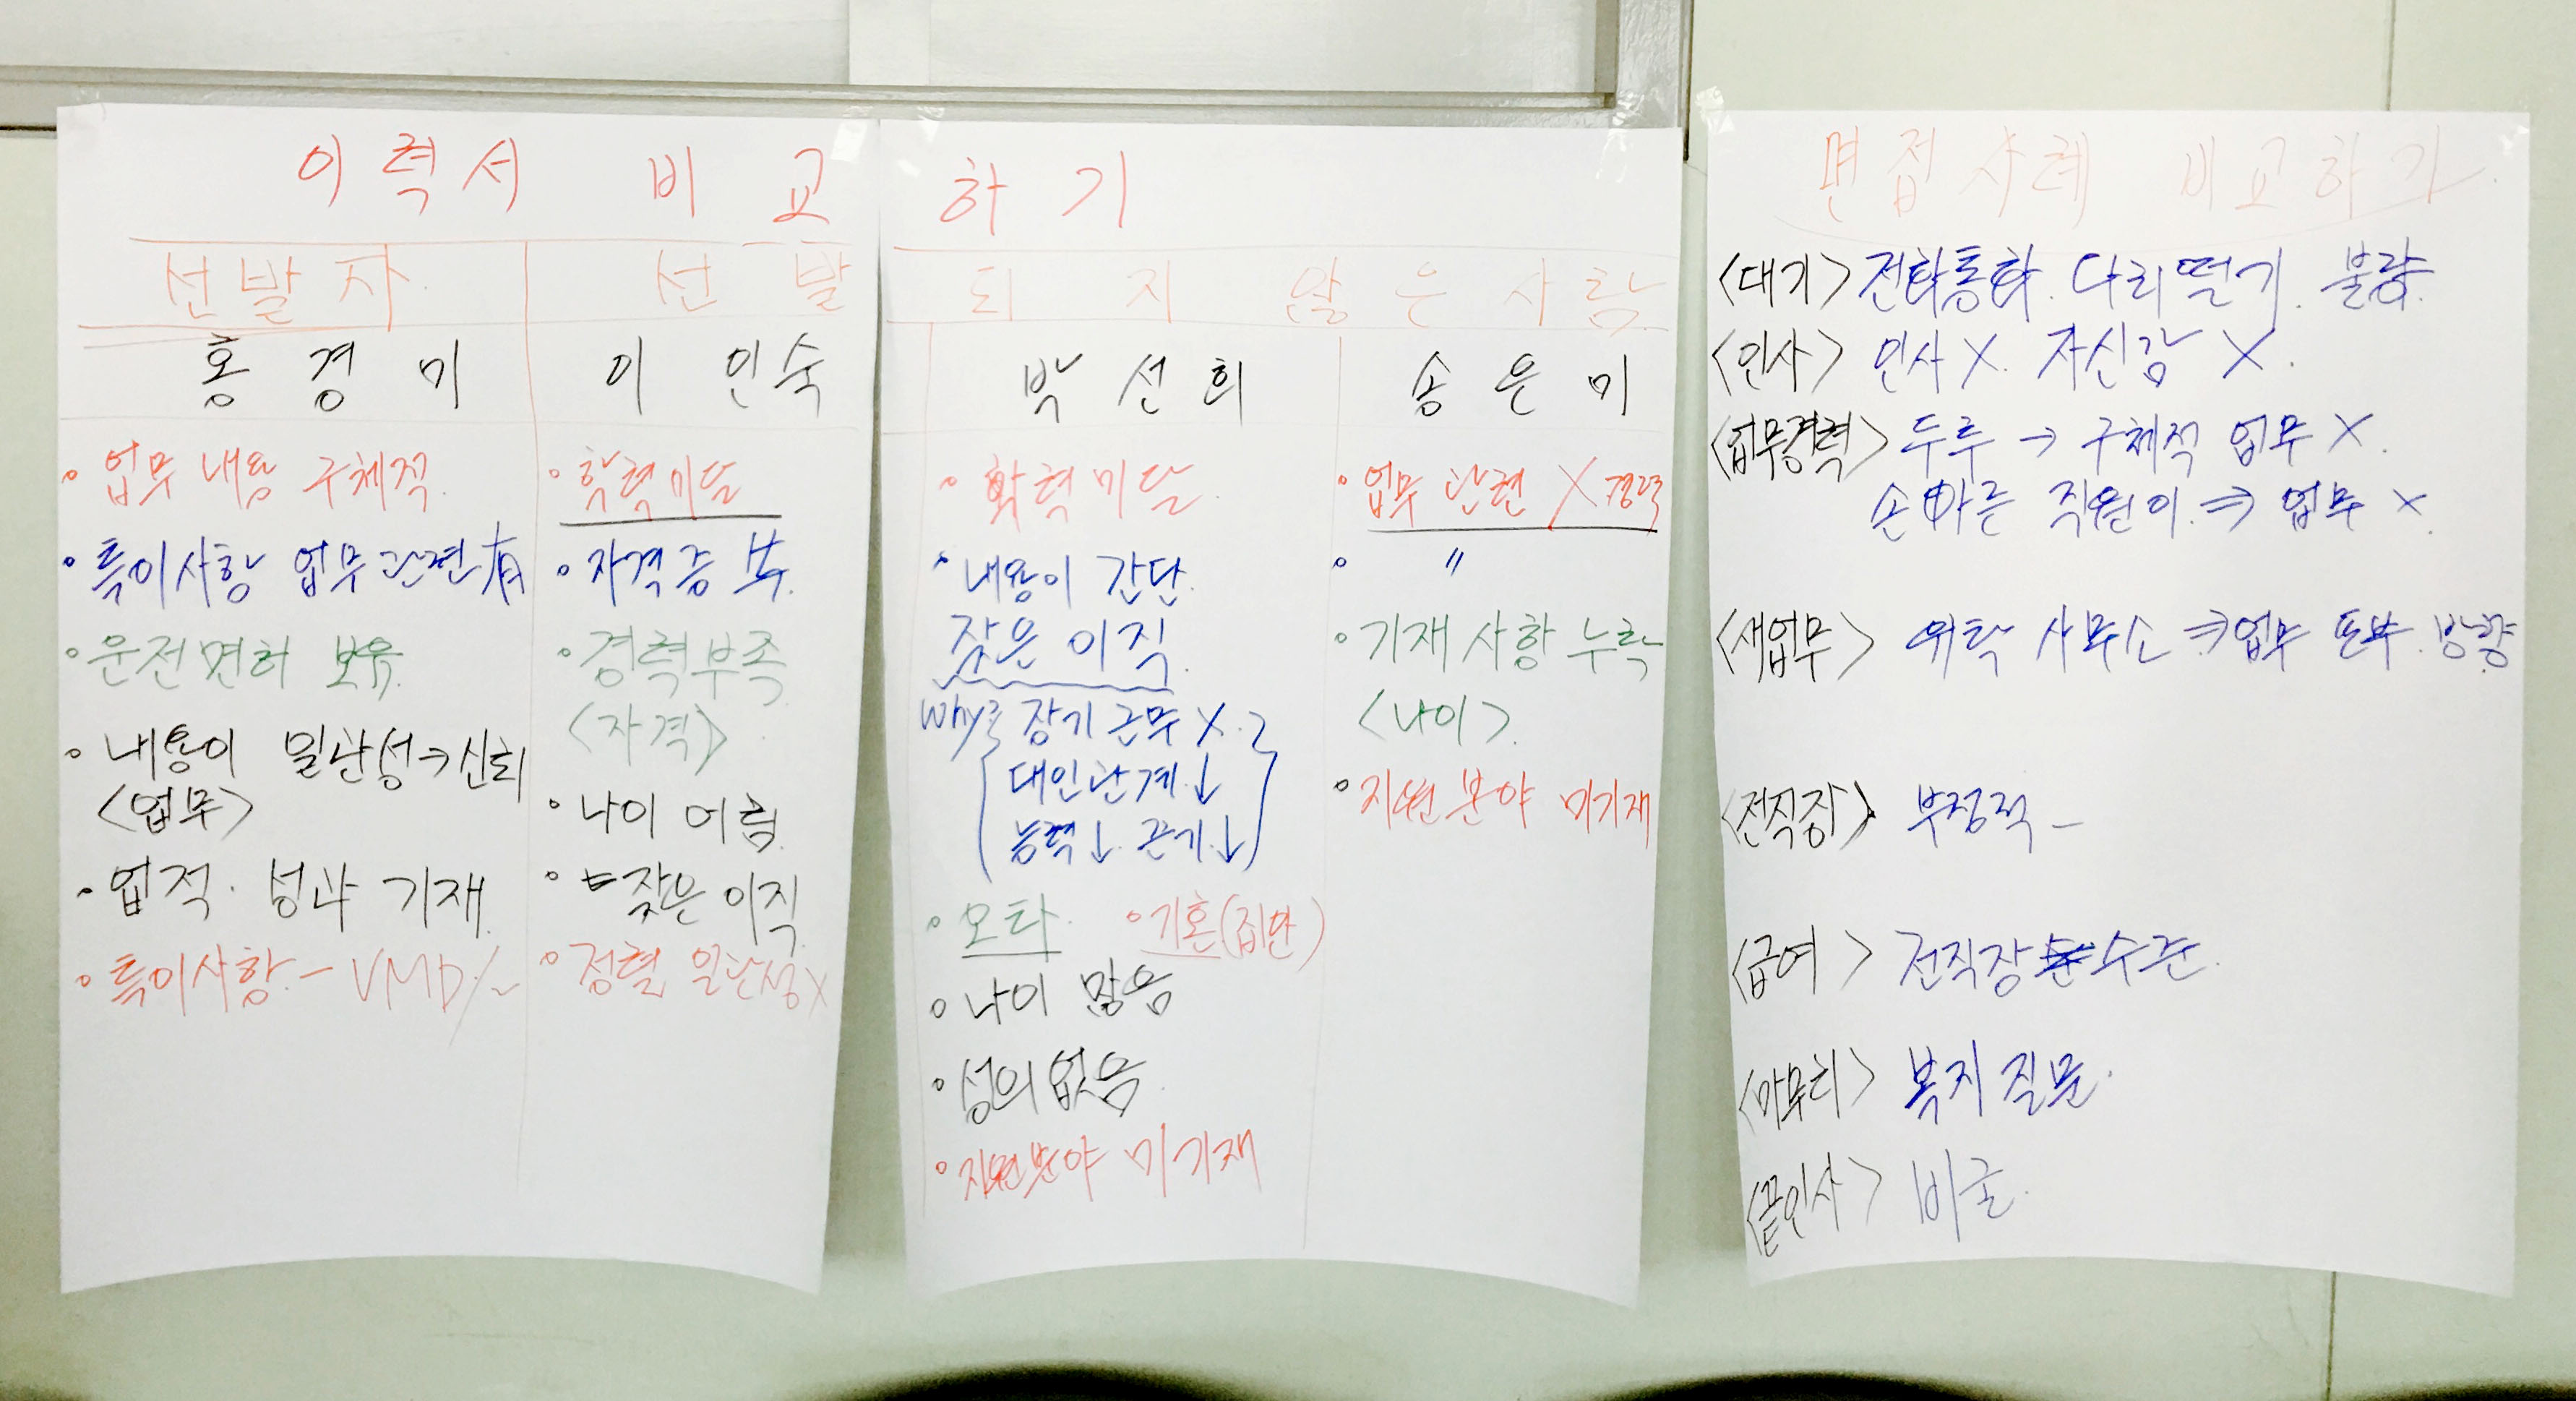 이력서 비교하기
선발자
선발되지 않은 사람
홍경미
이인숙
박선희
송은미
• 업무 내용 구체적
• 특이사항 업무관련 有
• 운전면허 보유
• 내용이 일관성→신뢰
<업무>
• 업적. 성과 기재
• 특이사항 - VMD/~
• 학력미달
• 자격증 부.
• 경력부족
<자격>
• 나이 어림
• 잦은 이직
• 정렬 일관성 X
• 학력미달
• 내용이 간단.
잦은 이직
why? 장기근무 X.
대인관계↓
능력↓. 끈기.↓
• 오타. • 기혼(집안)
• 나이 많음
• 성의없음
• 지원분야 미기재
• 업무 관련 X 경력
• 〃
• 기재사항 누락
<나이>
• 지원분야 미기재
면접사례 비교하기
<대기> 전화통화. 다리떨기. 불량.
<인사> 인사 X. 자신감 X.
<업무경력> 두루 → 구체적 업무 X.
손빠른 직원이 ⇒ 업무 X.
<새업무> 위탁 사무소 ⇒ 업무 방향
<전직장> 부정적 -
<급여> 전직장 수준.
<마무리> 복지 질문.
<끝인사> 비굴.